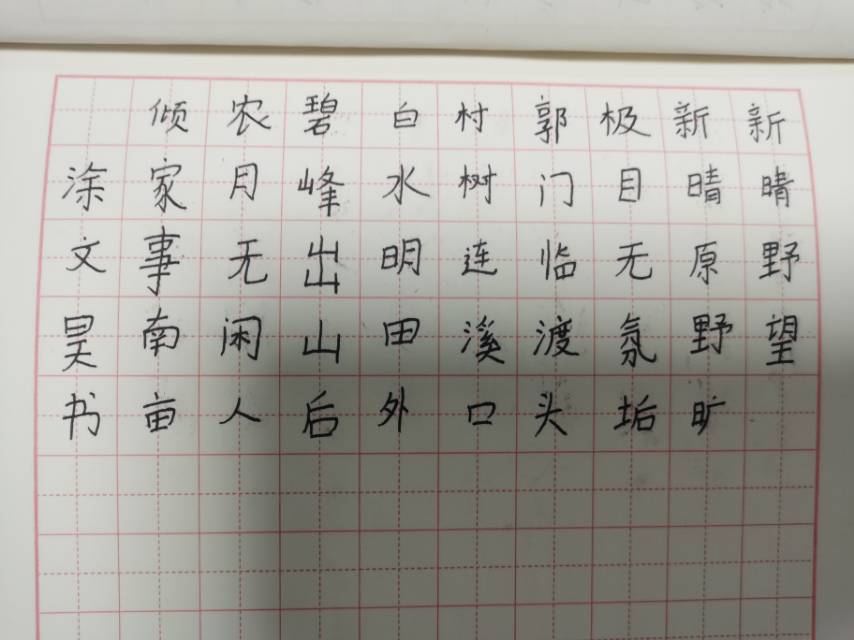 新晴野望
新晴原野旷
极目无氛垢
郭门临渡头
村树连溪口
白水明田外
碧峰出山后
农月无闲人
倾家事南亩
涂文昊书